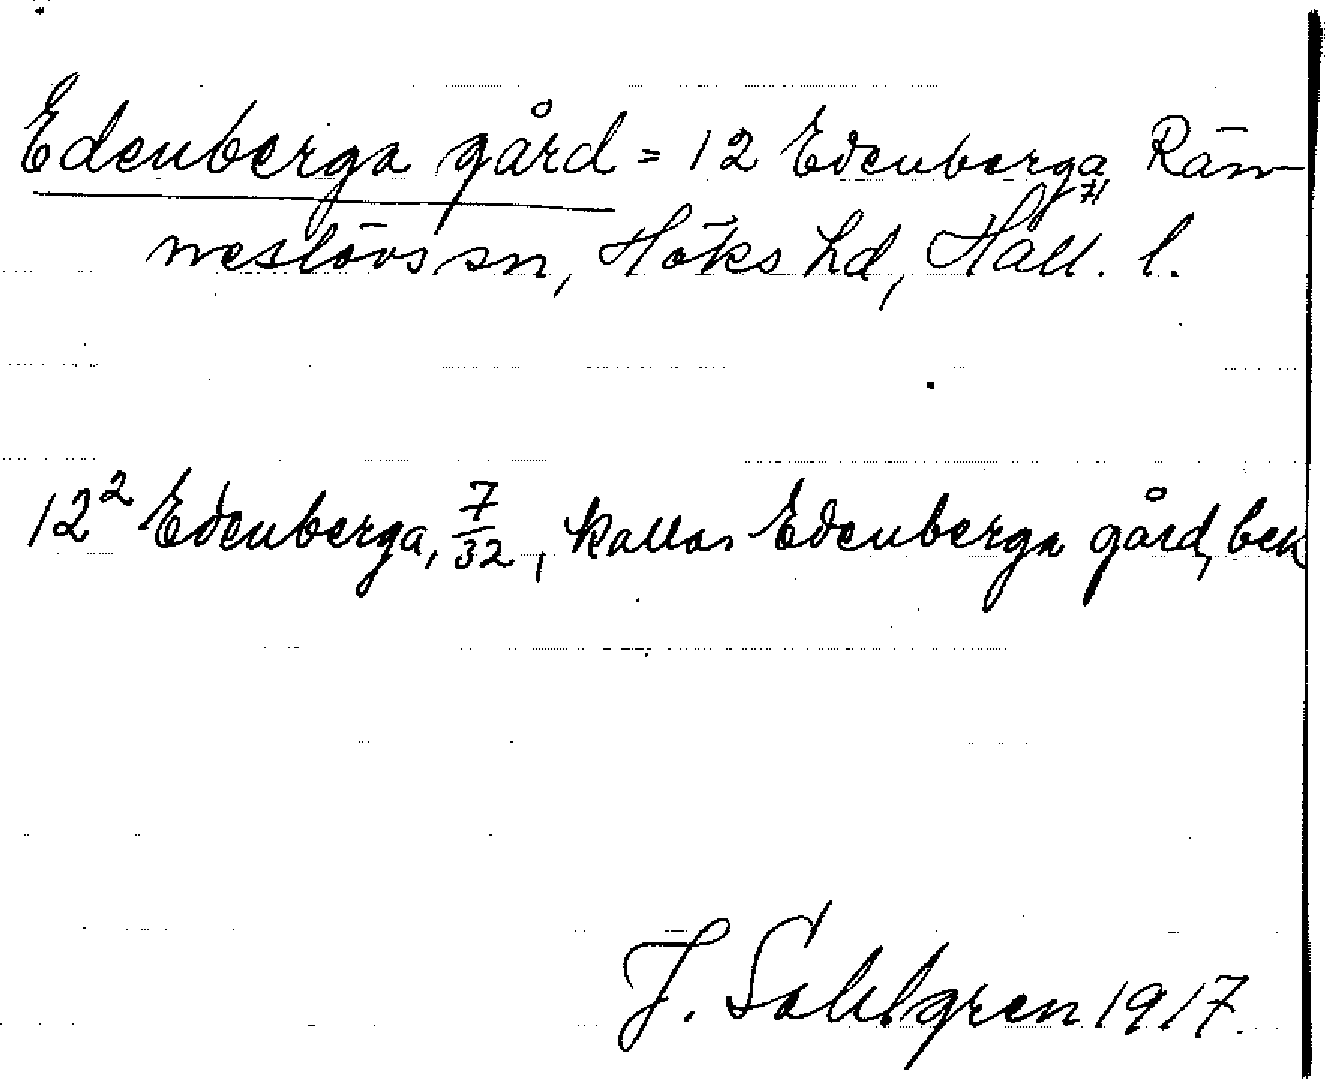 Edenberga gård = 12 Edenberga, Rän-
neslövs sn, Höks hd, Hall. l.
12² Edenberga, 7/32, kallas Edenberga gård, bek
J. Sahlgren 1917.